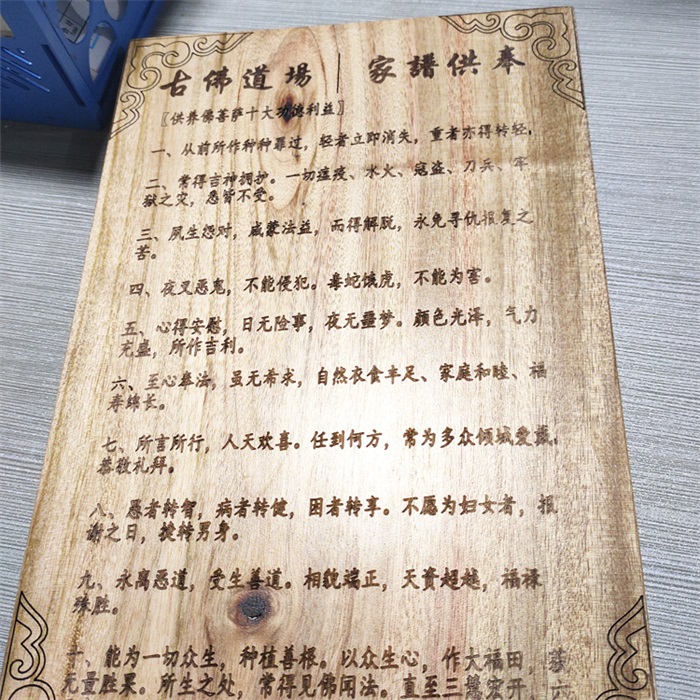 古佛道場 | 家譜供奉
〖供养佛菩萨十大功德利益〗
一、从前所作种种罪过，轻者立即消失，重者亦得转轻。
二、常得吉神拥护。一切瘟疫、水火、寇盗、刀兵、牢
狱之灾，悉皆不受。
三、夙生怨对，咸蒙法益，而得解脱，永免寻仇报复之
苦。
四、夜叉恶鬼，不能侵犯。毒蛇饿虎，不能为害。
五、心得安慰，日无险事，夜无噩梦。颜色光泽，气力
充盛，所作吉利。
六、至心奉法，虽无希求，自然衣食丰足、家庭和睦、福
寿绵长。
七、所言所行，人天欢喜。任到何方，常为多众倾城爱戴，
恭敬礼拜。
八、愚者转智，病者转健，困者转亨。不愿为妇女者，报
谢之日，捷转男身。
九、永离恶道，受生善道。相貌端正，天资超越，福禄
殊胜。
十、能为一切众生，种植善根。以众生心，作大福田，恭
无量胜果。所生之处，常得见佛闻法。直至三 宏开，六